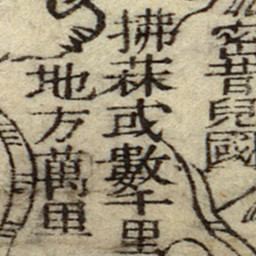 密昔兒國
拂菻或數千里
地方萬里